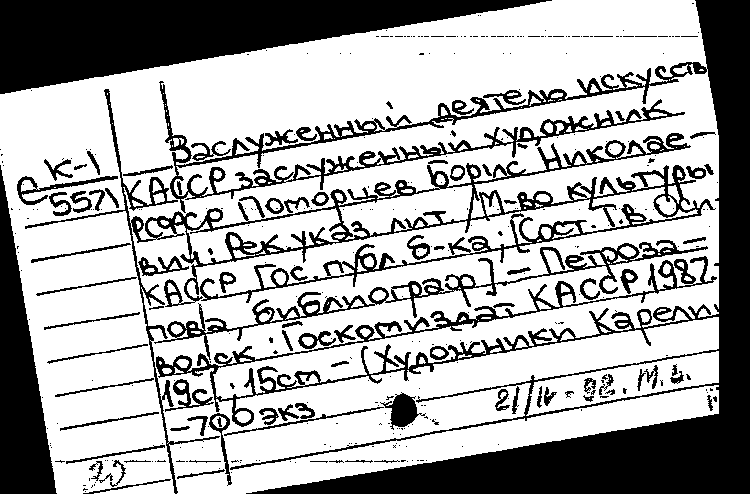 Заслуженный деятелю искусств
К-1
КАССР, заслуженный художник
С 5571
РСФСР Поморцев Борис Николае-
вич: Рек. указ. лит. / М-во культуры
КАССР, Гос. публ. б-ка; [Сост. Т.В. Оси-
пова, библиограф]. - Петроза-
водск: Госкомиздат КАССР, 1987.-
19с.; 15см. - (Художники Карелии
- 700 экз.
21/IV - 92. М.
20